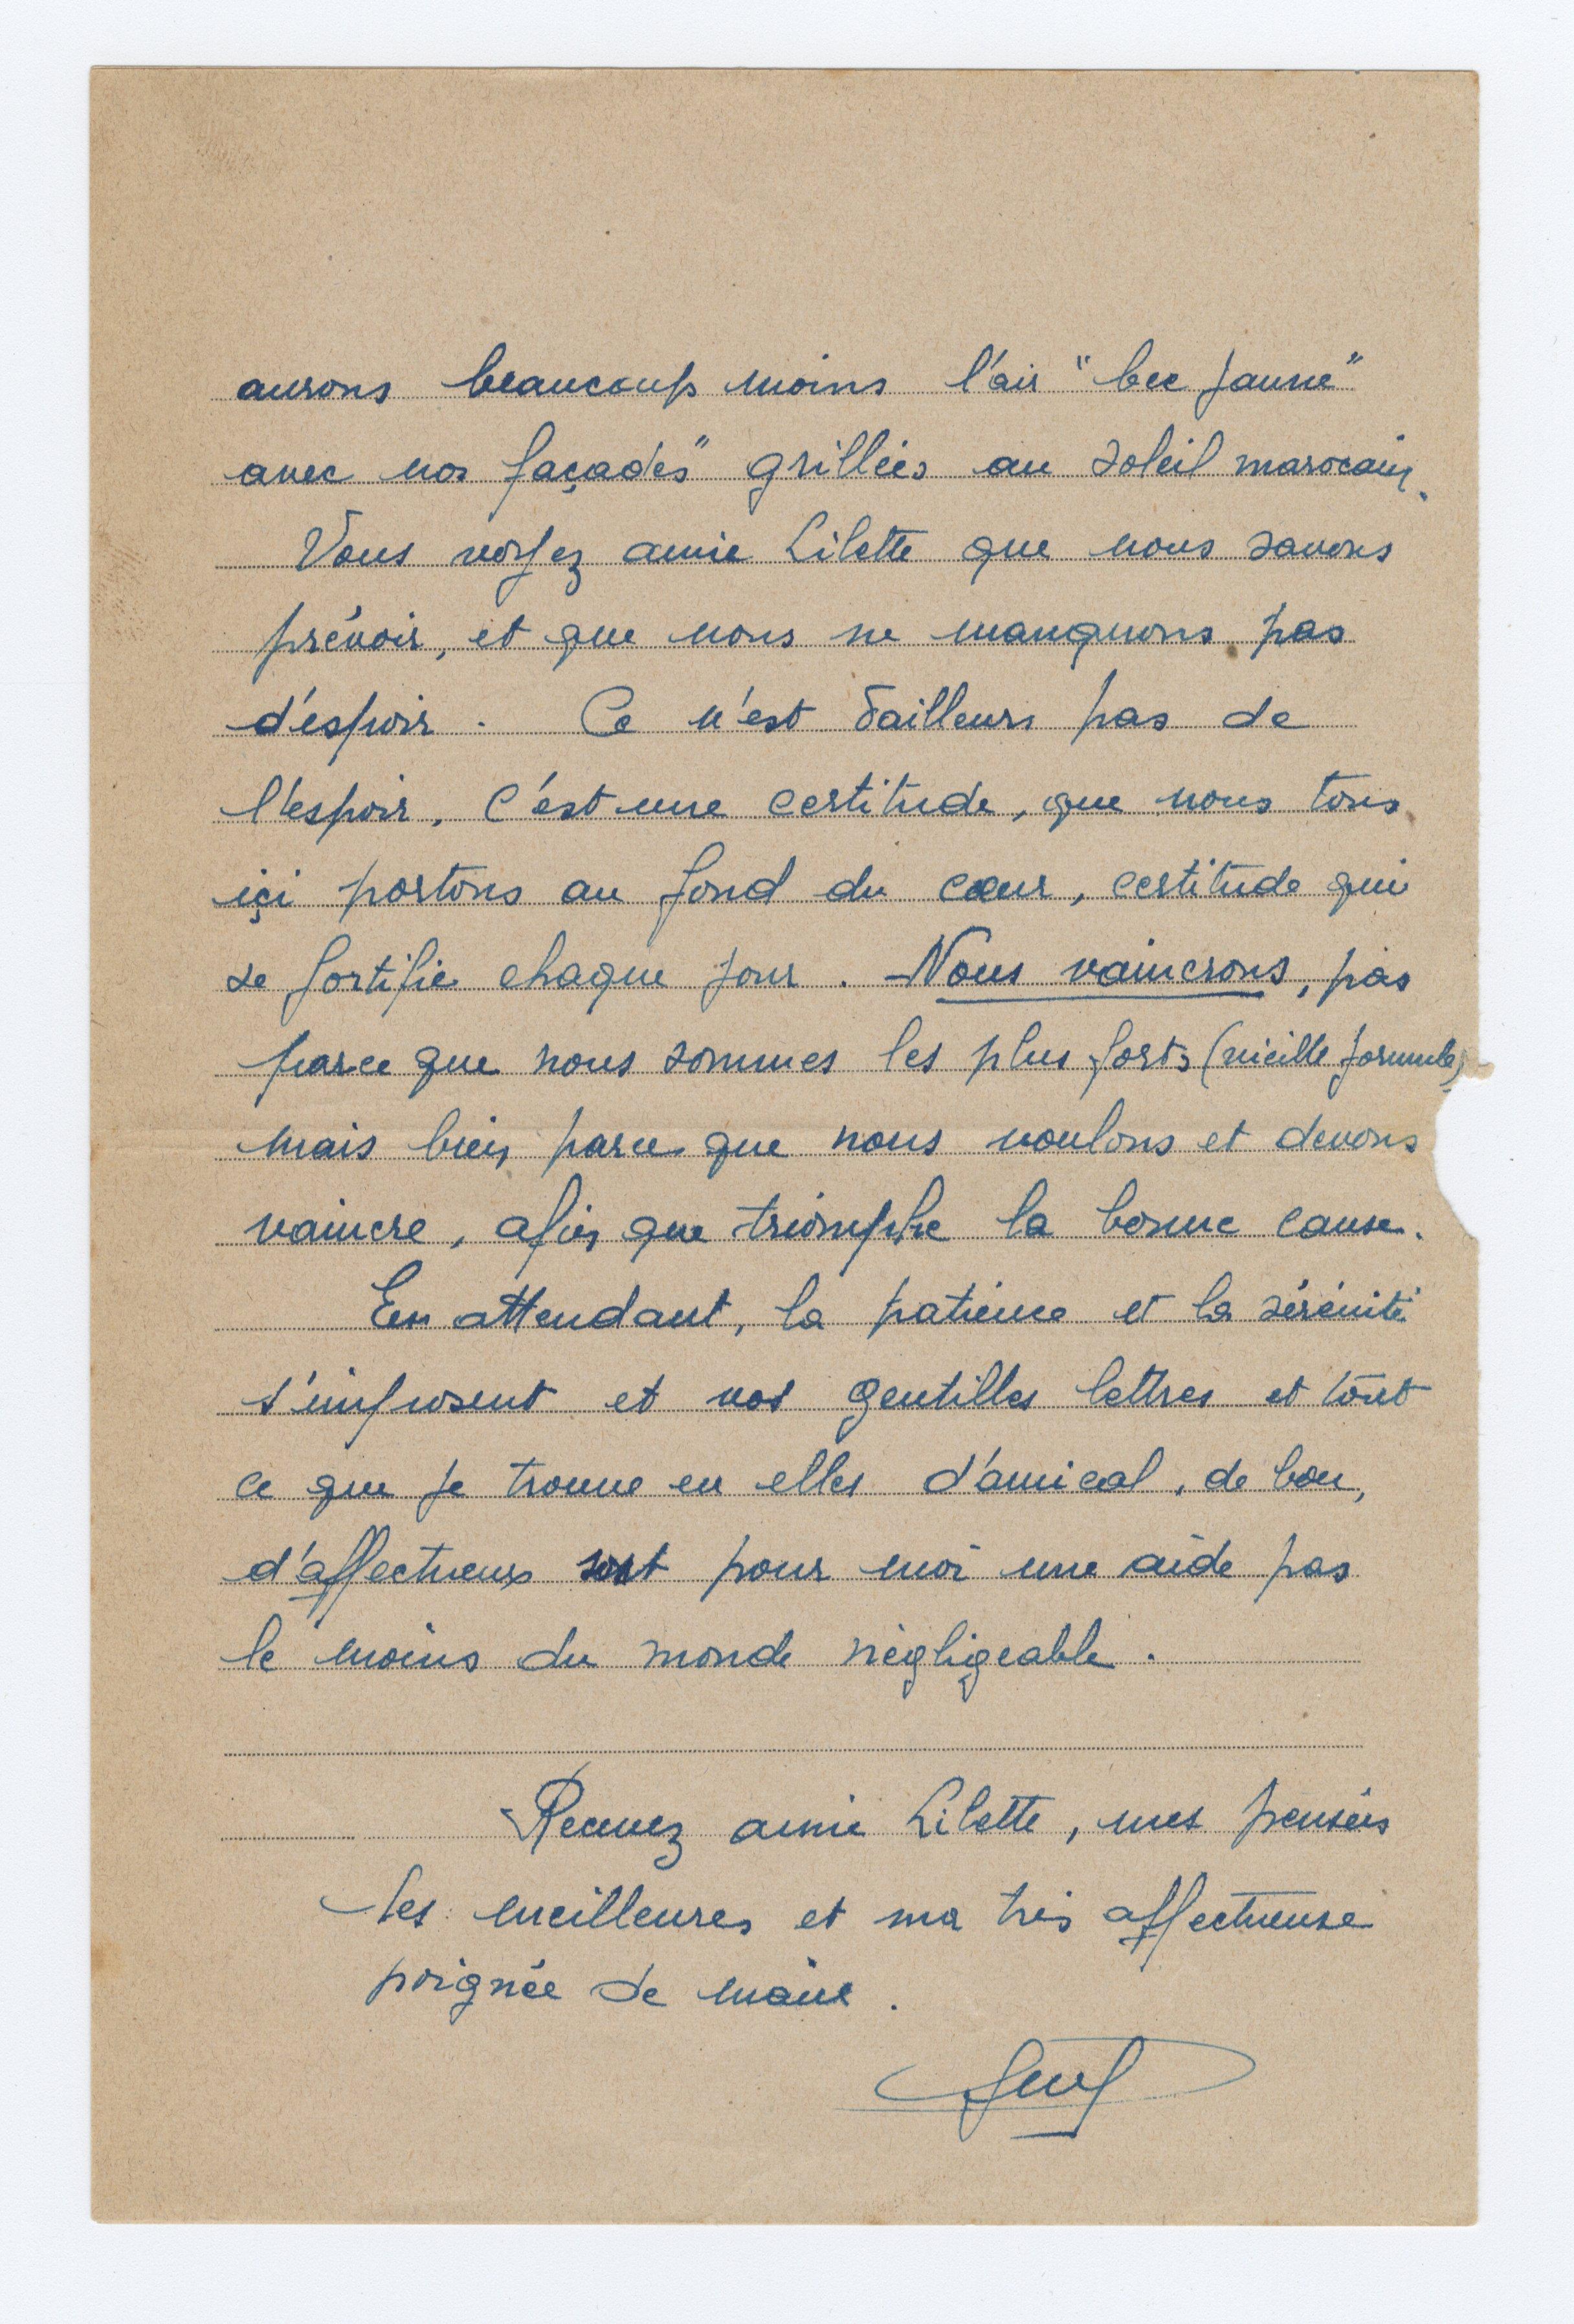 aurons beaucoup moins l'air "bec jaune"
avec nos façades" grillées au soleil marocain.
Vous voyez amie Lilette que nous savons
prévoir, et que nous ne manquons pas
d'espoir. Ce n'est d'ailleurs pas de
l'espoir, c'est une certitude, que nous tous
içi portons au fond du cœur, certitude qui
se fortifie chaque jour. Nous vaincrons, pas
parce que nous sommes les plus forts (vieille formule)
mais bien parce que nous voulons et devons
vaincre, afin que triomphe la bonne cause.
En attendant, la patience et la sérénité
s'imposent et vos gentilles lettres et tout
ce que je trouve en elles d'amical, de bon,
d'affectueux sont pour moi une aide pas
le moins du monde négligeable.
Recevez amie Lilette, mes pensées
les meilleures et ma très affectueuse
poignée de main.